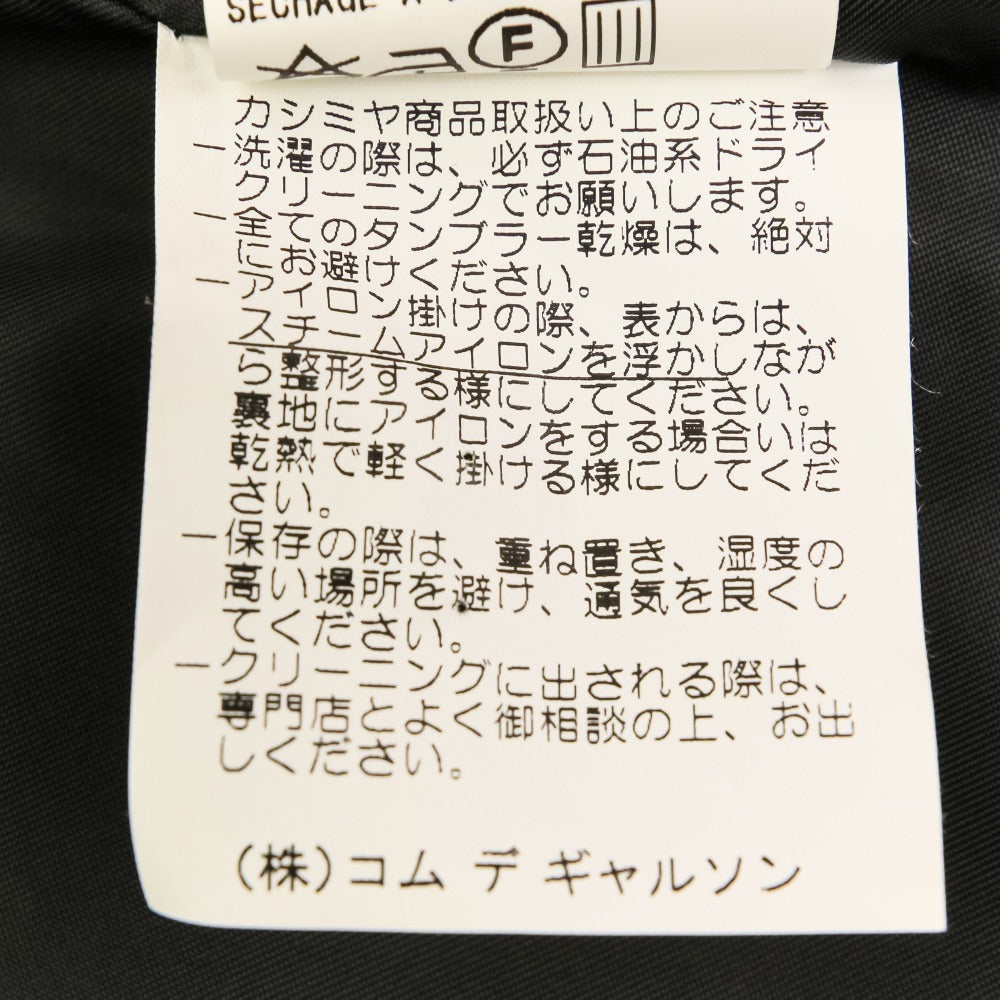 SECHAGE A
F
カシミヤ商品取扱い上のご注意
－洗濯の際は、必ず石油系ドライ
クリーニングでお願いします。
－全てのタンブラー乾燥は、絶対
にお避けください。
－アイロン掛けの際、表からは、
スチームアイロンを浮かしなが
ら整形する様にしてください。
裏地にアイロンをする場合いは
乾熱で軽く掛ける様にしてくだ
さい。
－保存の際は、重ね置き、湿度の
高い場所を避け、通気を良くし
てください。
－クリーニングに出される際は、
専門店とよく御相談の上、お出
しください。
(株)コム デ ギャルソン